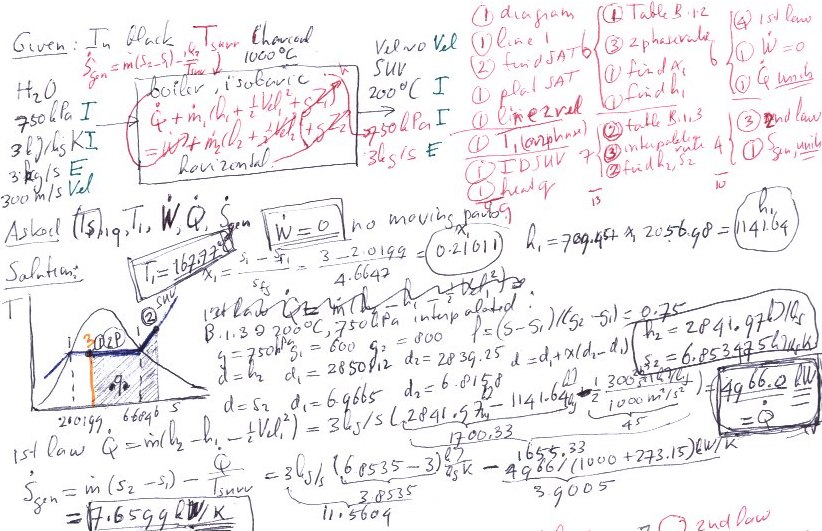 Given: In black
T surr
Charcoal
1000°C
Ṡgen = ṁ(s2-s1) - Q̇/Tsurr
H₂O
750 kPa I
3 kJ/kg K I
3 kg/s E
300 m/s Vel
boiler, isobaric
Q̇ + ṁ₁(h₁ + ½Vel₁² + gZ₁)
= Ẇ + ṁ₂(h₂ + ½Vel₂² + gZ₂)
horizontal
Vel
SUV
200°C I
750 kPa I
3 kg/s E
① diagram
① line 1
② find SAT
① plot SAT
① line 2 vel
① T₁ (on phase)
① ID SUV
① heat q
9
① Table B.1.2
③ 2 phase rule
① find x₁
① find h₁
6
② table B.1.3
③ interpolate
② find h₂, s₂
7
13
④ 1st law
① Ẇ = 0
① Q̇ units
6
③ 2nd law
① Ṡgen, units
4
10
Asked (Ts)1q, T₁, Ẇ, Q̇, Ṡgen
Ẇ = 0 no moving parts
Solution:
T₁ = 167.77°C
x₁ = (s₁ - sf₁)/sfg = (3 - 2.0199)/4.6647 = 0.21011
x₁
h₁ = 709.45 + x₁ 2056.98 = 1141.64
h₁
T
SUV
1
3
2P
②
q
2.0199
6.6846
S
B.1.3 @ 200°C, 750 kPa interpolated:
g = 750 kPa g₁ = 600 g₂ = 800 f = (g - g₁)/(g₂ - g₁) = 0.75
d = h₂ d₁ = 2850.12 d₂ = 2839.25 d = d₁ + x(d₂ - d₁)
d = s₂ d₁ = 6.9665 d₂ = 6.8158
h₂ = 2841.97 kJ/kg
s₂ = 6.853475 kJ/kg K
1st law Q̇ = ṁ(h₂ - h₁ - ½Vel₁²) = 3 kg/s (2841.97 - 1141.64 - ½ 300²/1000 m²/s²) = 4966.0 kW = Q̇
1700.33
45
1655.33
Ṡgen = ṁ(s₂ - s₁) - Q̇/Tsurr = 3 kg/s (6.8535 - 3) kJ/kg K - 4966/(1000 + 273.15) kW/K
3.8535
11.5604
3.9005
= 7.6599 kW/K
2nd law